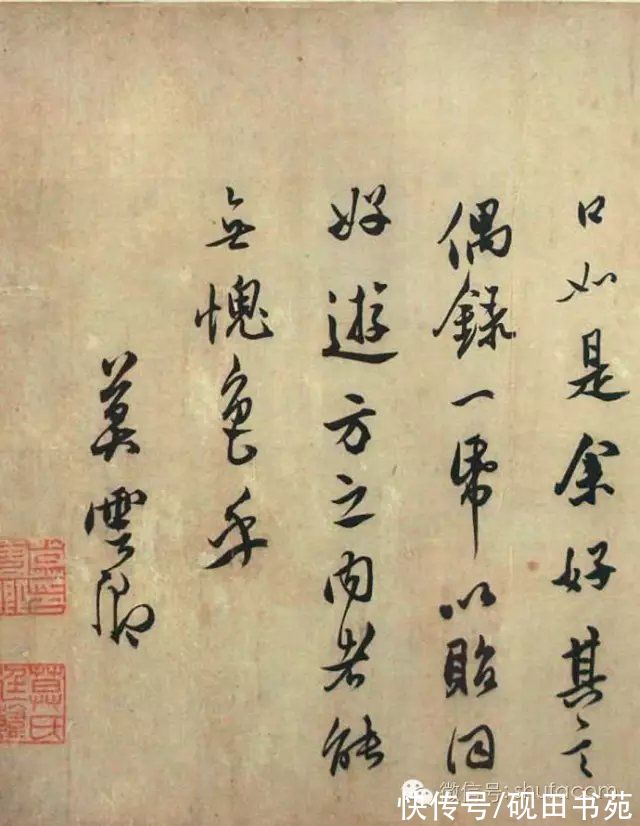 只如是余好其言
偶錄一帋以貽同
好遊方之内者能
無愧色乎
莫雲卿
莫氏
微信号: shufacom
快传号/砚田书苑